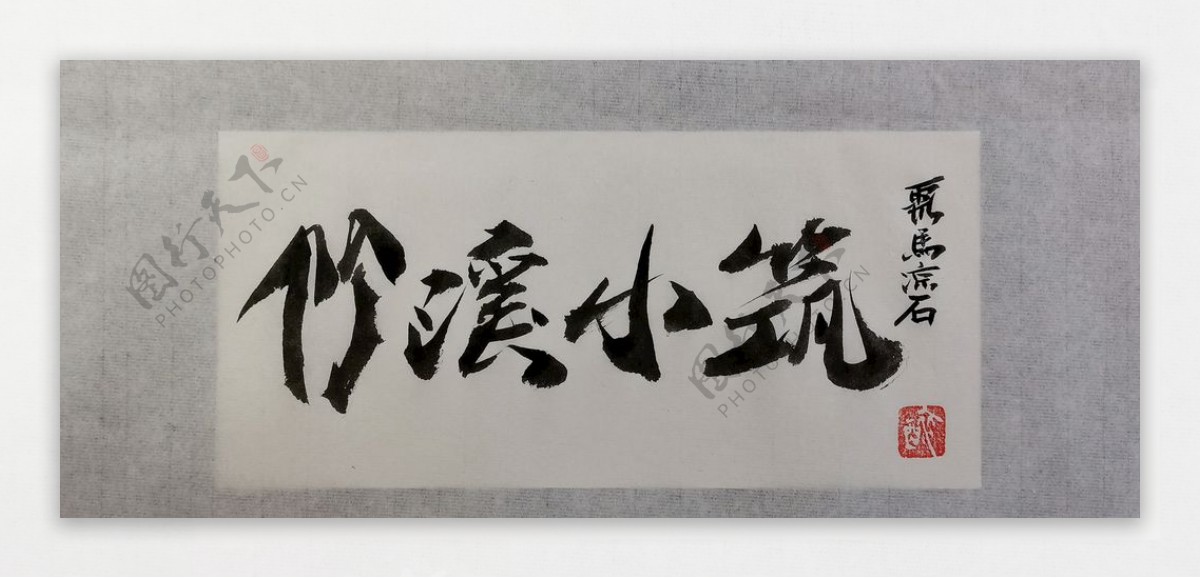 竹溪小筑
马宗石
图行天下
PHOTOPHOTO.CN
图行天下
PHOTOPHOTO.CN